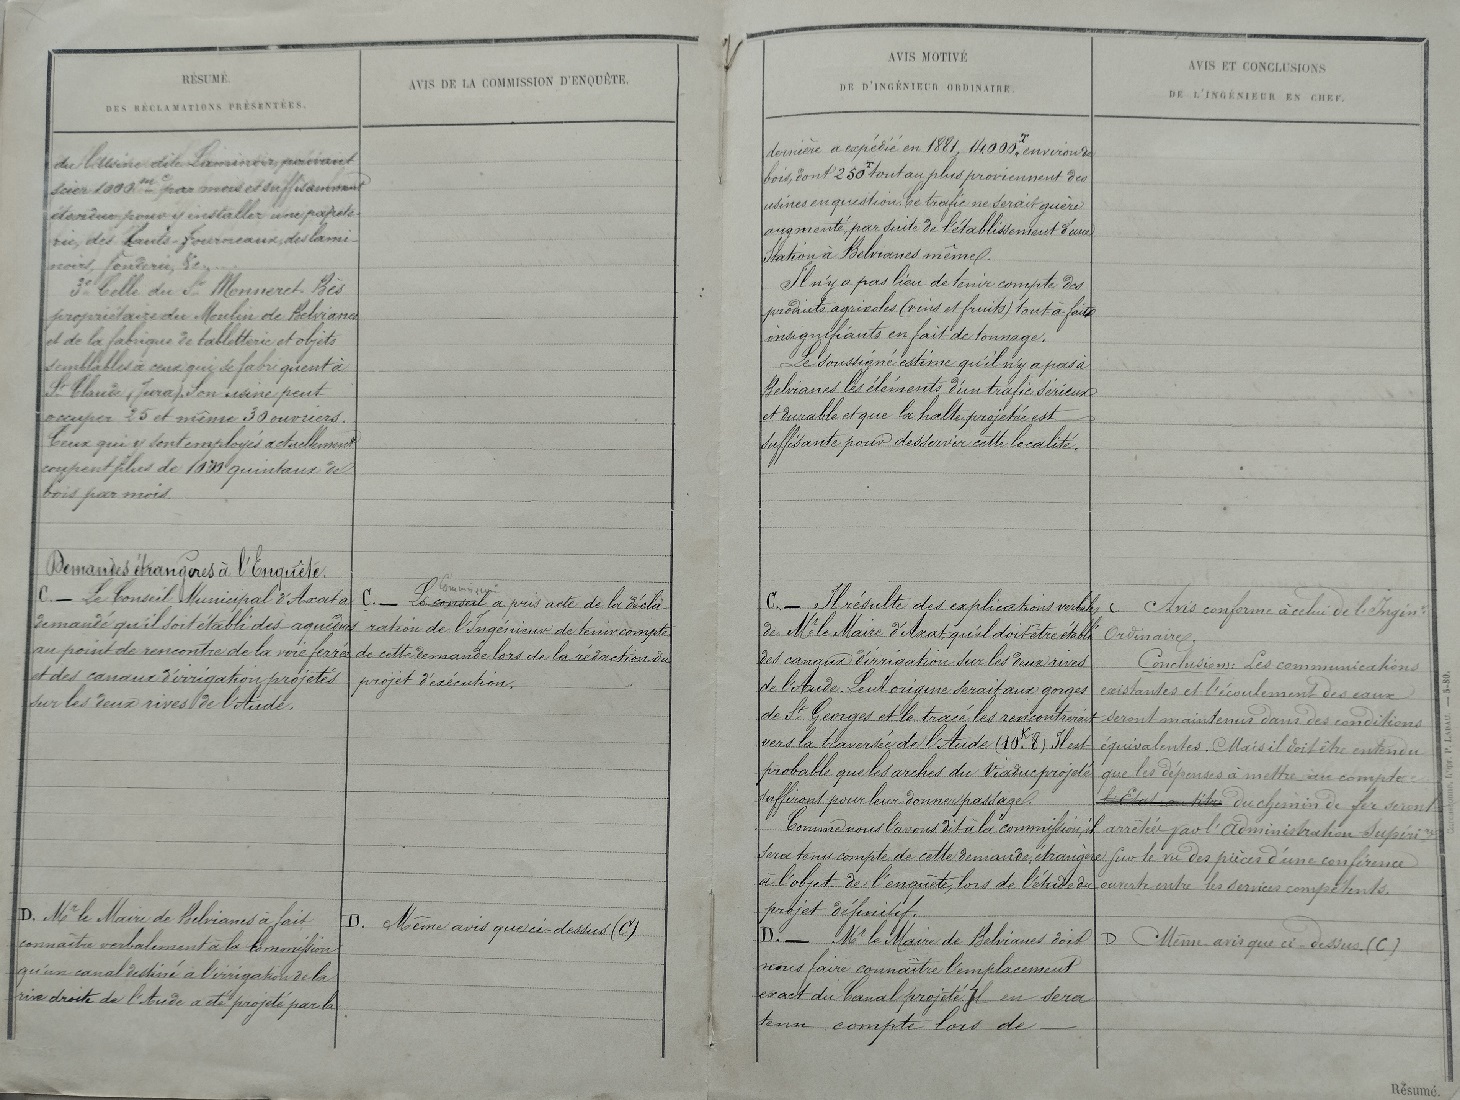 RÉSUMÉ
DES RÉCLAMATIONS PRÉSENTÉES.
du l'Usine dite Laminoir, pouvant
scier 1000 m.c par mois et suffisamment
étendue pour y installer une papete-
rie, des Hauts-Fourneaux, des lami-
noirs, fonderie, &c, ....
3° Celle du Sr Monneret Bès
propriétaire du Moulin de Belvianes
et de la fabrique de tabletterie et objets
semblables à ceux qui se fabriquent à
St Claude, (Jura). Son usine peut
occuper 25 et même 30 ouvriers.
Ceux qui y sont employés actuellement
coupent plus de 1000 quintaux de
bois par mois.
Demandes étrangères à l'Enquête.
C. — Le Conseil Municipal d'Axat a
demandé qu'il soit établi des aqueducs
au point de rencontre de la voie ferrée
et des canaux d'irrigation projetés
sur les deux rives de l'Aude.
D. Mr le Maire de Belvianes a fait
connaître verbalement à la Commission
qu'un canal destiné à l'irrigation de la
rive droite de l'Aude a été projeté par la
AVIS DE LA COMMISSION D'ENQUÊTE.
Commission
C. — Le conseil a pris acte de la décla-
ration de l'Ingénieur de tenir compte
de cette demande lors de la rédaction du
projet d'exécution.
D. Même avis que ci-dessus (C)
AVIS MOTIVÉ
DE D'INGÉNIEUR ORDINAIRE.
dernière a expédié en 1881, 14000T environ de
bois, dont 250T tout au plus proviennent des
usines en question. Ce trafic ne serait guère
augmenté, par suite de l'établissement d'une
Station à Belvianes même.
Il n'y a pas lieu de tenir compte des
produits agricoles (vins et fruits) tout-à-fait
insignifiants en fait de tonnage.
Le soussigné estime qu'il n'y a pas à
Belvianes les éléments d'un trafic sérieux
et durable et que la halte projetée est
suffisante pour desservir cette localité.
C. — Il résulte des explications verbales
de Mr le Maire d'Axat qu'il doit être établi
des canaux d'irrigation sur les deux rives
de l'Aude. Leur origine serait aux gorges
de St Georges et le tracé les rencontrerait
vers la traversée de l'Aude (10K.8) Il est
probable que les arches du Viaduc projeté
suffiront pour leur donner passage.
Comme nous l'avons dit à la commission, il
sera tenu compte de cette demande, étrangère
à l'objet de l'enquête, lors de l'étude du
projet définitif.
D. — Mr le Maire de Belvianes doit
nous faire connaître l'emplacement
exact du Canal projeté. Il en sera
tenu compte lors de —
AVIS ET CONCLUSIONS
DE L'INGÉNIEUR EN CHEF.
C Avis conforme à celui de l'Ingénr
Ordinaire.
Conclusion: Les communications
existantes et l'écoulement des eaux
seront maintenus dans des conditions
équivalentes. Mais il doit être entendu
que les dépenses à mettre au compte
du chemin de fer seront
arrêtées par l'Administration Supérre
sur le vu des pièces d'une conférence
ouverte entre les services compétents.
D Même avis que ci-dessus. (C)
Résumé.